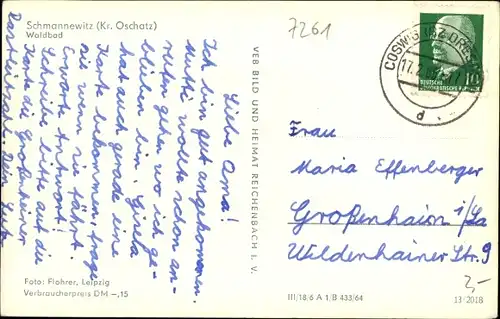 Schmannewitz (Kr. Oschatz)
Waldbad
7261
Liebe Oma!
Ich bin gut angekommen.
Mutti wollte schon an-
rufen gehen wo ich ge-
blieben bin. Gisela
hat auch gerade eine
Karte bekommen, frage
sie wenn sie fährt.
Erwarte Antwort!
Schreibe bitte auf die
Karte die Großenhainer
Dein
Foto: Flohrer, Leipzig
Verbraucherpreis DM -,15
VEB BILD UND HEIMAT REICHENBACH I. V.
COSWIG (BZ DRESDEN)
17.2.
d
10
DEUTSCHE
DEMOKRATISCHE REPUBLIK
Frau
Maria Effenberger
Großenhain i/Sa
Wildenhainer Str. 9
III/18/6 A 1/B 433/64
13/2018
2,-